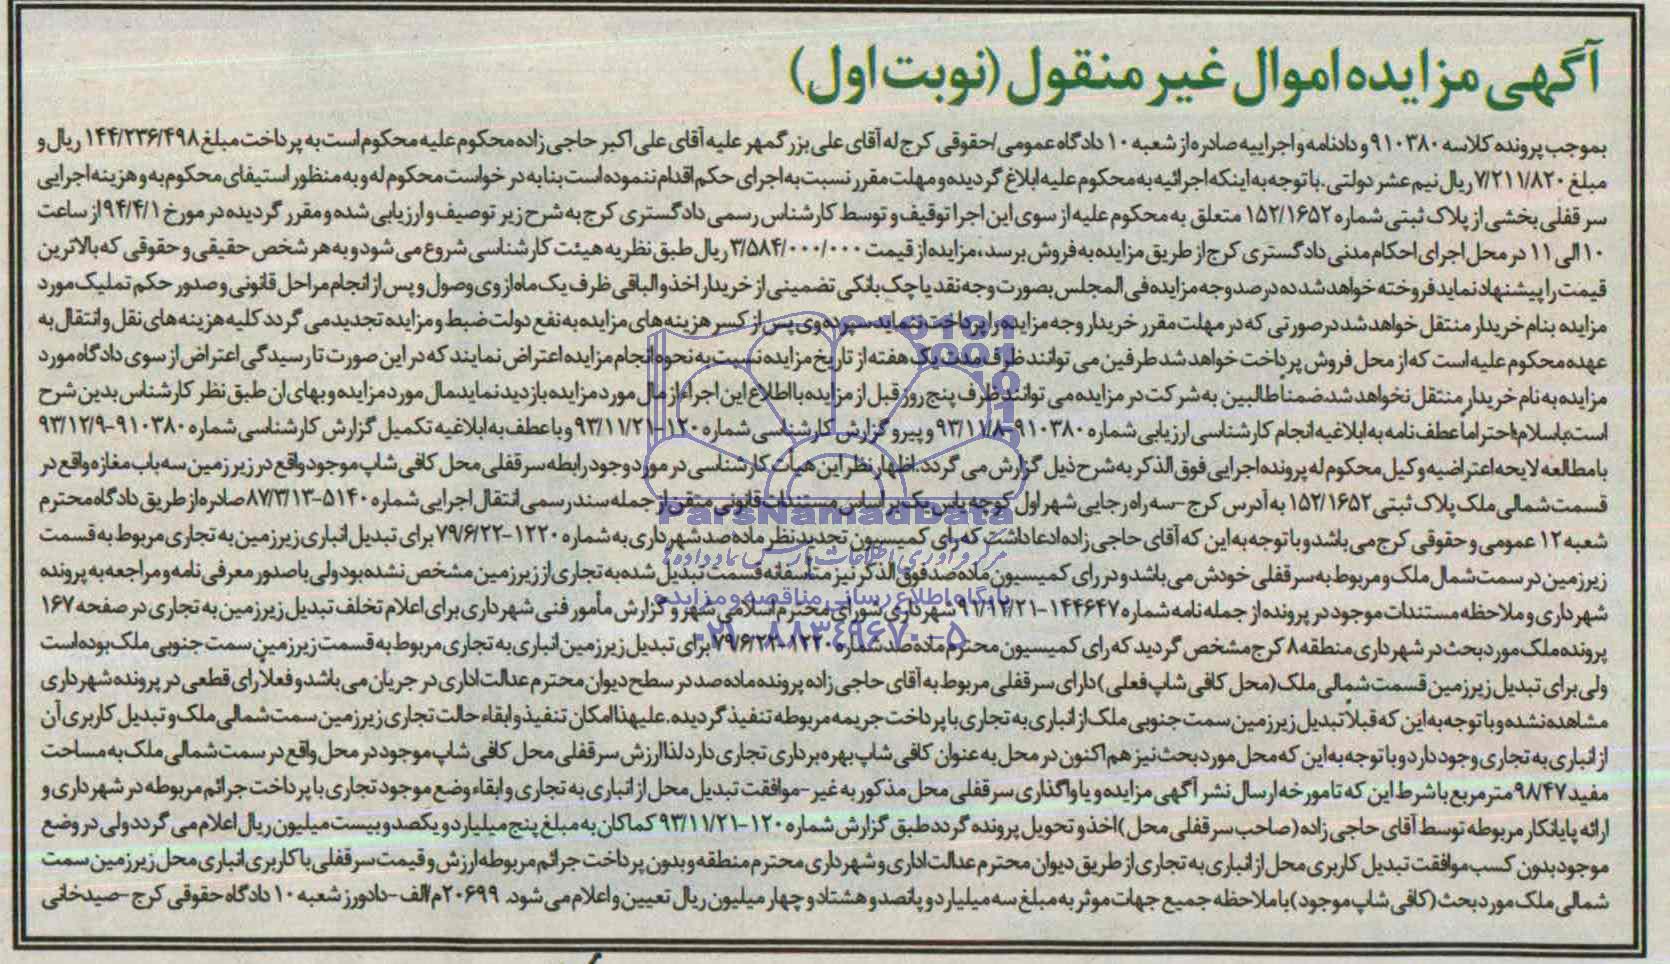 آگهی مزایده اموال غیر منقول (نوبت اول)
بموجب پرونده کلاسه ۹۱۰۳۸۰ و دادنامه و اجراییه صادره از شعبه ۱۰ دادگاه عمومی/حقوقی کرج له آقای علی بزرگمهر علیه آقای علی اکبر حاجی زاده محکوم علیه محکوم است به پرداخت مبلغ ۱۴۴/۲۳۶/۴۹۸ ریال و
مبلغ ۷/۲۱۱/۸۲۰ ریال نیم عشر دولتی. با توجه به اینکه اجرائیه به محکوم علیه ابلاغ گردیده و مهلت مقرر نسبت به اجرای حکم اقدام ننموده است بنا به درخواست محکوم له و به منظور استیفای محکوم به و هزینه اجرایی
سرقفلی بخشی از پلاک ثبتی شماره ۱۵۲/۱۶۵۲ متعلق به محکوم علیه از سوی این اجرا توقیف و توسط کارشناس رسمی دادگستری کرج به شرح زیر توصیف و ارزیابی شده و مقرر گردیده در مورخ ۹۴/۴/۱ از ساعت
۱۰ الی ۱۱ در محل اجرای احکام مدنی دادگستری کرج از طریق مزایده به فروش برسد، مزایده از قیمت ۳/۵۸۴/۰۰۰/۰۰۰ ریال طبق نظریه هیئت کارشناسی شروع می شود و به هر شخص حقیقی و حقوقی که بالاترین
قیمت را پیشنهاد نماید فروخته خواهد شد ده درصد وجه مزایده فی المجلس بصورت وجه نقد یا چک بانکی تضمینی از خریدار اخذ و الباقی ظرف یک ماه از وی وصول و پس از انجام مراحل قانونی و صدور حکم تملیک مورد
مزایده بنام خریدار منتقل خواهد شد در صورتی که در مهلت مقرر خریدار وجه مزایده را پرداخت ننماید سپرده وی پس از کسر هزینه های مزایده به نفع دولت ضبط و مزایده تجدید می گردد کلیه هزینه های نقل و انتقال به
عهده محکوم علیه است که از محل فروش پرداخت خواهد شد طرفین می توانند ظرف مدت یک هفته از تاریخ مزایده نسبت به نحوه انجام مزایده اعتراض نمایند که در این صورت تا رسیدگی اعتراض از سوی دادگاه مورد
مزایده به نام خریدار منتقل نخواهد شد. ضمناً طالبین به شرکت در مزایده می توانند ظرف پنج روز قبل از مزایده با اطلاع این اجراء از مال مورد مزایده بازدید نمایند. مال مورد مزایده و بهای ان طبق نظر کارشناس بدین شرح
است: باسلام؛ احتراماً عطف نامه به ابلاغیه انجام کارشناسی ارزیابی شماره ۹۱۰۳۸۰-۹۳/۱۱/۸ و پیرو گزارش کارشناسی شماره ۱۲۰-۹۳/۱۱/۲۱ و با عطف به ابلاغیه تکمیل گزارش کارشناسی شماره ۹۱۰۳۸۰-۹۳/۱۲/۹
با مطالعه لایحه اعتراضیه وکیل محکوم له پرونده اجرایی فوق الذکر به شرح ذیل گزارش می گردد. اظهار نظر این هیأت کارشناسی در مورد وجود رابطه سرقفلی محل کافی شاپ موجود واقع در زیرزمین سه باب مغازه واقع در
قسمت شمالی ملک پلاک ثبتی ۱۵۲/۱۶۵۲ به آدرس کرج - سه راه رجایی شهر اول کوچه یاس یک بر اساس مستندات قانونی متقن از جمله سند رسمی انتقال اجرایی شماره ۵۱۴۰-۸۷/۳/۱۳ صادره از طریق دادگاه محترم
شعبه ۱۲ عمومی و حقوقی کرج می باشد و با توجه به این که آقای حاجی زاده ادعا داشت که رای کمیسیون تجدید نظر ماده صد شهرداری به شماره ۱۲۲۰-۷۹/۶/۲۲ برای تبدیل انباری زیرزمین به تجاری مربوط به قسمت
زیرزمین در سمت شمال ملک و مربوط به سرقفلی خودش می باشد و در رای کمیسیون ماده صد فوق الذکر نیز متأسفانه قسمت تبدیل شده به تجاری از زیرزمین مشخص نشده بود ولی با صدور معرفی نامه و مراجعه به پرونده
شهرداری و ملاحظه مستندات موجود در پرونده از جمله نامه شماره ۱۴۴۶۴۷-۹۱/۱۲/۲۱ شهرداری شورای محترم اسلامی شهر و گزارش مأمور فنی شهرداری برای اعلام تخلف تبدیل زیرزمین به تجاری در صفحه ۱۶۷
پرونده ملک مورد بحث در شهرداری منطقه ۸ کرج مشخص گردید که رای کمیسیون محترم ماده صد شماره ۱۲۲۰-۷۹/۶/۲۲ برای تبدیل زیرزمین انباری به تجاری مربوط به قسمت زیرزمین سمت جنوبی ملک بوده است
ولی برای تبدیل زیرزمین قسمت شمالی ملک (محل کافی شاپ فعلی) دارای سرقفلی مربوط به آقای حاجی زاده پرونده ماده صد در سطح دیوان محترم عدالت اداری در جریان می باشد و فعلا رای قطعی در پرونده شهرداری
مشاهده نشده و با توجه به این که قبلاً تبدیل زیرزمین سمت جنوبی ملک از انباری به تجاری با پرداخت جریمه مربوطه تنفیذ گردیده. علیهذا امکان تنفیذ و ابقاء حالت تجاری زیرزمین سمت شمالی ملک و تبدیل کاربری آن
از انباری به تجاری وجود دارد و با توجه به این که محل مورد بحث نیز هم اکنون در محل به عنوان کافی شاپ بهره برداری تجاری دارد لذا ارزش سرقفلی محل کافی شاپ موجود در محل واقع در سمت شمالی ملک به مساحت
مفید ۹۸/۴۷ متر مربع با شرط این که تا مورخه ارسال نشر آگهی مزایده و یا واگذاری سرقفلی محل مذکور به غیر - موافقت تبدیل محل از انباری به تجاری و ابقاء وضع موجود تجاری با پرداخت جرائم مربوطه در شهرداری و
ارائه پایانکار مربوطه توسط آقای حاجی زاده (صاحب سرقفلی محل) اخذ و تحویل پرونده گردد طبق گزارش شماره ۱۲۰-۹۳/۱۱/۲۱ کماکان به مبلغ پنج میلیارد و یکصد و بیست میلیون ریال اعلام می گردد ولی در وضع
موجود بدون کسب موافقت تبدیل کاربری محل از انباری به تجاری از طریق دیوان محترم عدالت اداری و شهرداری محترم منطقه و بدون پرداخت جرائم مربوطه ارزش و قیمت سرقفلی با کاربری انباری محل زیرزمین سمت
شمالی ملک مورد بحث (کافی شاپ موجود) با ملاحظه جمیع جهات موثر به مبلغ سه میلیارد و پانصد و هشتاد و چهار میلیون ریال تعیین و اعلام می شود. ۲۰۶۹۹م/الف - دادورز شعبه ۱۰ دادگاه حقوقی کرج - صیدخانی
ParsNamadData
پایگاه اطلاع رسانی مناقصه و مزایده
۰۲۱-۸۸۳۴۹۶۷۰-۵